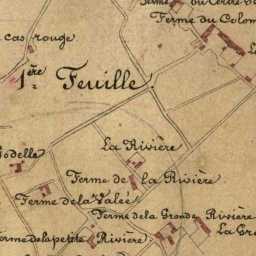 Ferme du Colom
cas rouge
1ère Feuille
La Rivière
odelle
Ferme de la Rivière
Ferme de la Valeé
Ferme de la Grande Rivière
La Gr
erme de la petite Rivière